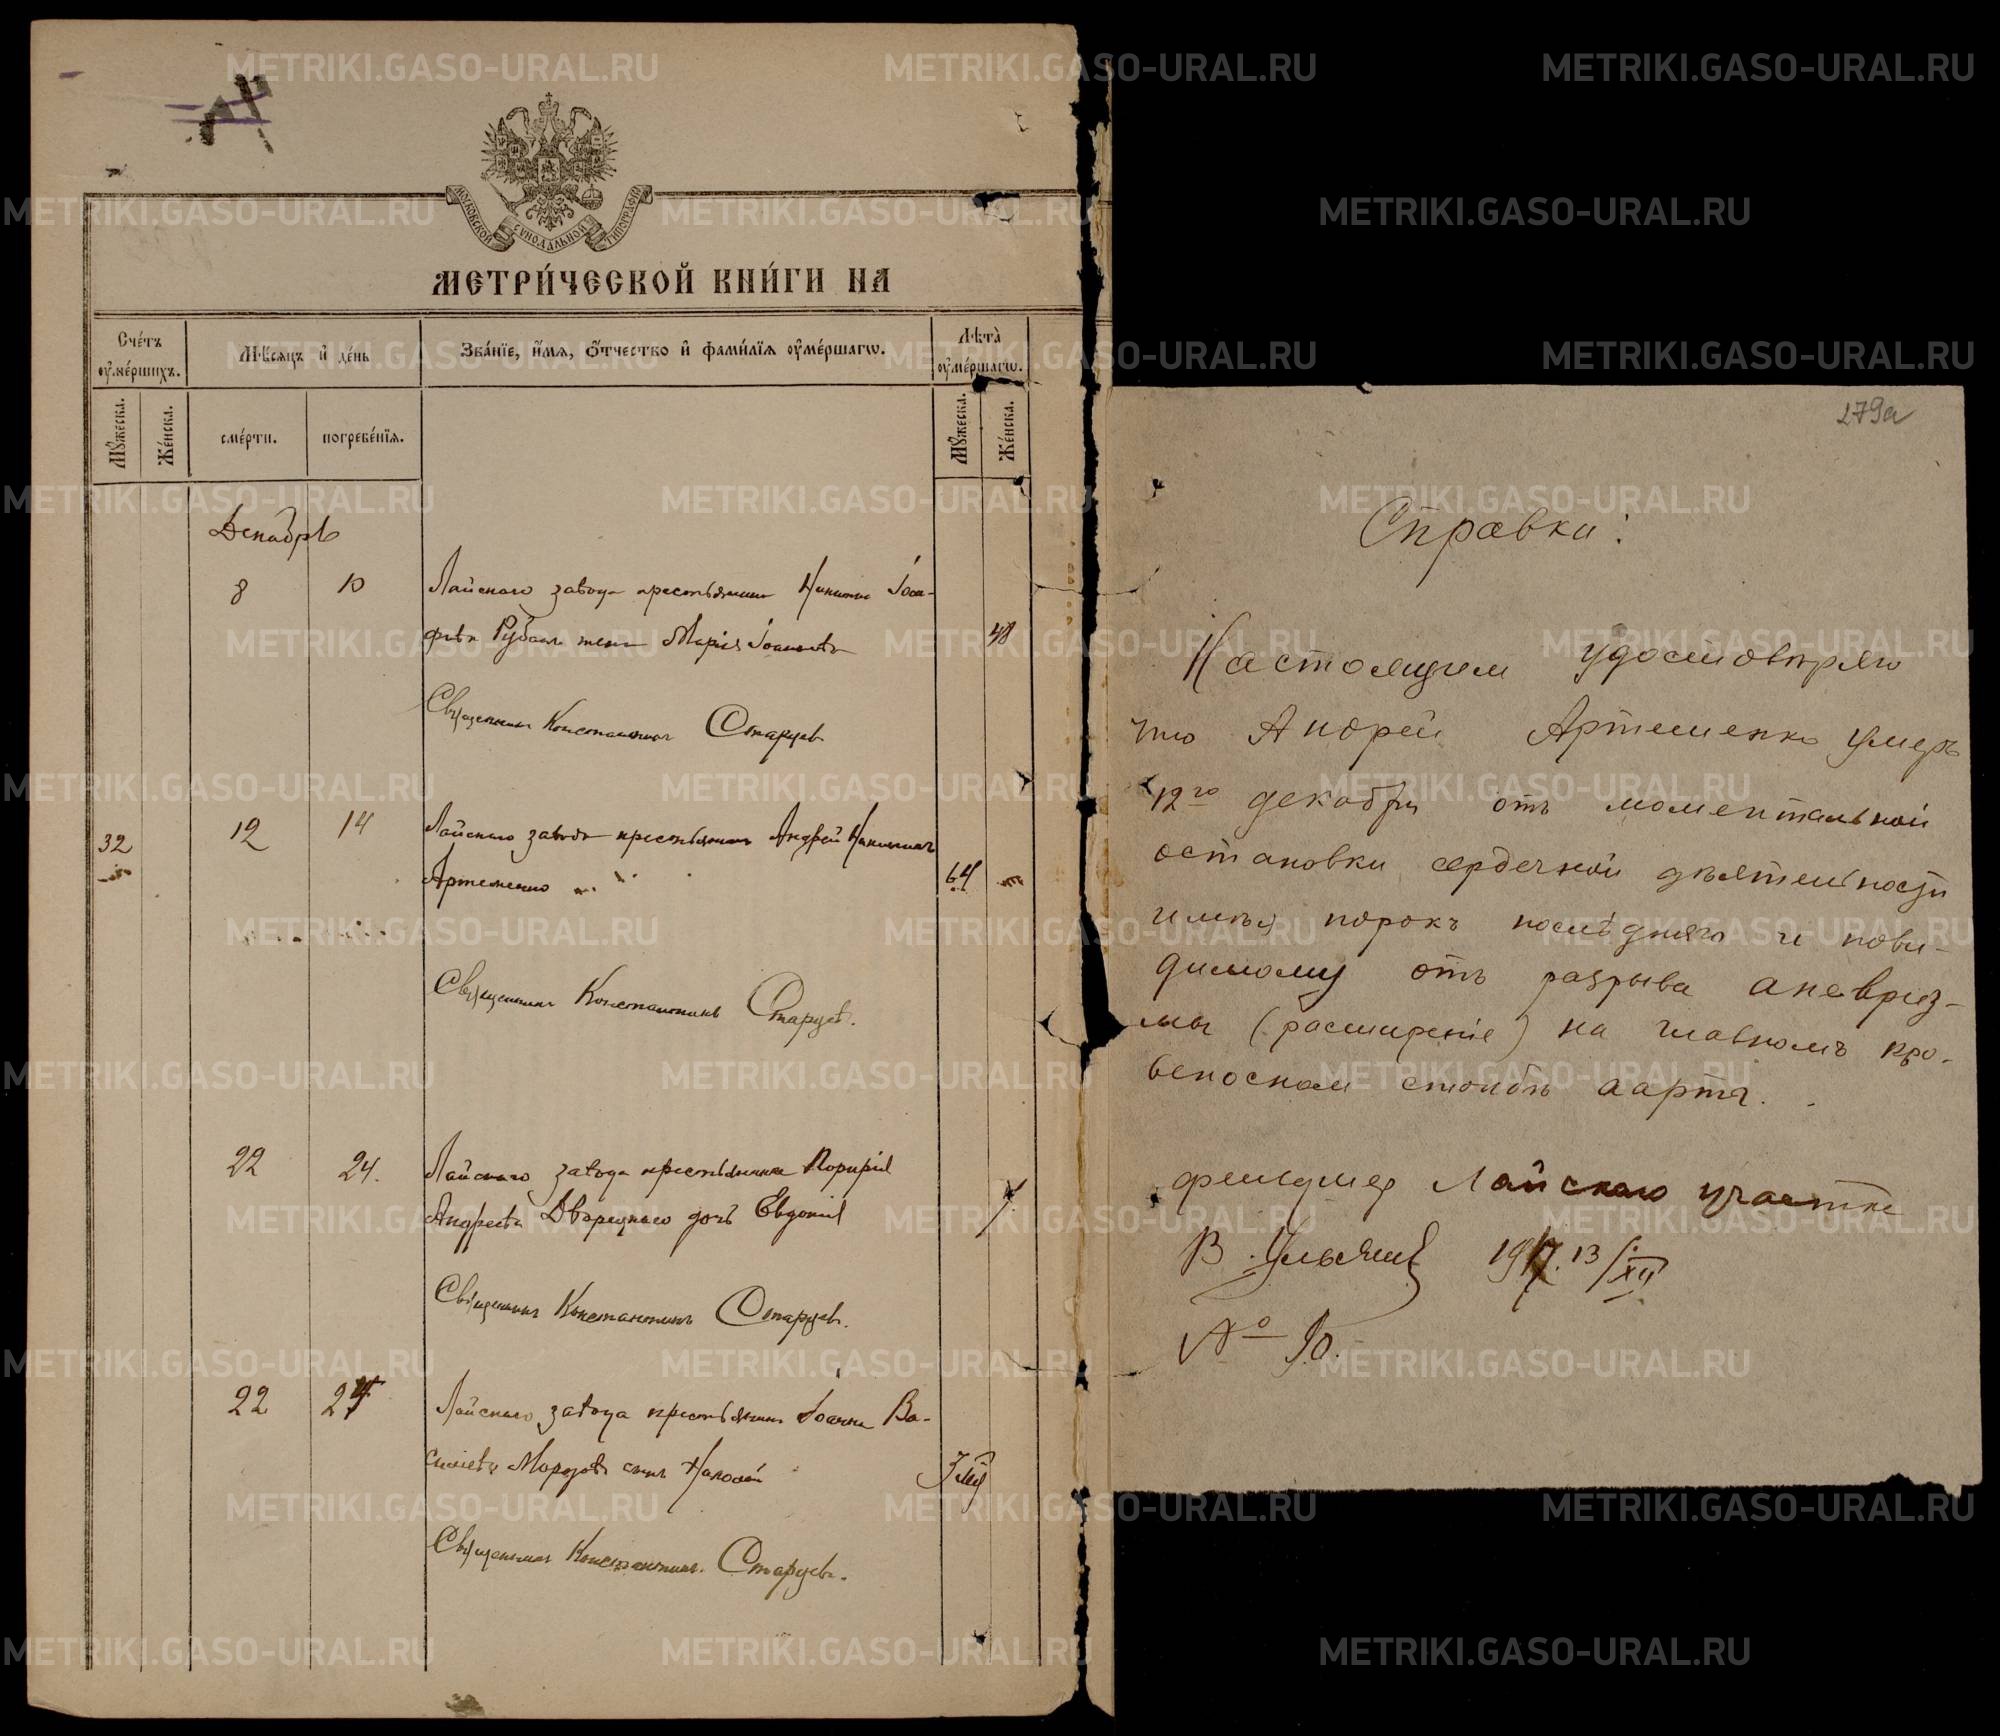 МОСКОВСКОЙ СѴНОДАЛЬНОЙ ТИПОГРАФІИ
МЕТРИ́ЧЕСКОЙ КНИ́ГИ НА
Сче́тъ ᲂу҆ме́ршихъ.
Мѣ́сяцъ и҆ де́нь
Зва́нїе, и҆́мѧ, ѻ҆́тчество и҆ фами́лїѧ ᲂу҆ме́ршагѡ.
Лѣта̀ ᲂу҆ме́ршагѡ.
Мꙋ́жеска.
Же́нска.
сме́рти.
погребе́нїѧ.
Мꙋ́жеска.
Же́нска.
Декабрь
8 10 Лайскаго завода крестьянина Никиты Іоса-
фова жена Марія Іоаннова 48
Священникъ Константинъ Старцевъ
32 12 14 Лайскаго завода крестьянинъ Андрей Никитинъ
Артеменко 64
Священникъ Константинъ Старцевъ.
22 24. Лайскаго завода крестьянина Порфирія
Андреева Дворецкаго дочь Евдокія
Священникъ Константинъ Старцевъ.
22 24 Лайскаго завода крестьянина Іоанна Ва-
сильева Морозова сынъ Николай
Священникъ Константинъ Старцевъ.
279а
Справка:
Настоящим удостовѣряю
что Андрей Артеменко умеръ
12го декабря отъ моментальной
остановки сердечной дѣятельности
имѣя порокъ послѣдняго и пови-
димому отъ разрыва аневриз-
мы (расширеніе) на главномъ кро-
веносном столбѣ аарты.
фельдшер Лайскаго участка
В. 1917. 13/XII
№ 90.
METRIKI.GASO-URAL.RU